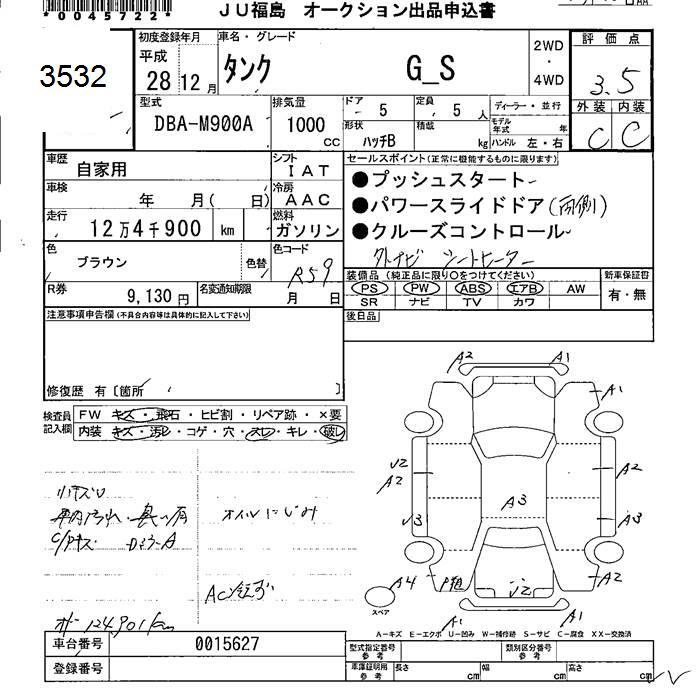 *0045722*
JU福島 オークション出品申込書
3532
初度登録年月
平成
28 12月
車名・グレード
タンク G_S
2WD
・
4WD
評価点
3.5
型式
DBA-M900A
排気量
1000 CC
ドア 5
定員 5 人
ディーラー・並行
形状 ハッチB
積載 kg
モデル年式 年
ハンドル 左・右
外装 内装
C C
車歴
自家用
シフト
IAT
セールスポイント(正常に機能するものに限ります)
車検
年 月( 日)
冷房
AAC
●プッシュスタート
●パワースライドドア(両側)
●クルーズコントロール
外ナビ シートヒーター
走行
12万4千900 km
燃料
ガソリン
色
ブラウン
色替
色コード
R59
装備品(純正品に限り○をつけてください)
新車保証書
PS PW ABS エアB AW
SR ナビ TV カワ
有・無
R券
9,130円
名変通知期限
月 日
注意事項申告欄(不具合内容等は具体的に記入して下さい)
後日品
修復歴 有〔箇所 〕
検査員記入欄
FW キズ・飛石・ヒビ割・リペア跡・×要
内装 キズ・汚レ・コゲ・穴・スレ・キレ・破レ
A2 A1
A1
V2
A2
A2
A3
V3
A3
A4
A2
V2
A1
A1
スペア
オイルにじみ
D ミラーA
オドー124901km
A-キズ E-エクボ U-凹み W-補修跡 S-サビ C-腐食 XX-交換済
車台番号 0015627
登録番号
型式指定番号 参考
類別区分番号 参考
車庫証明用 参考
長さ cm 幅 cm 高さ cm